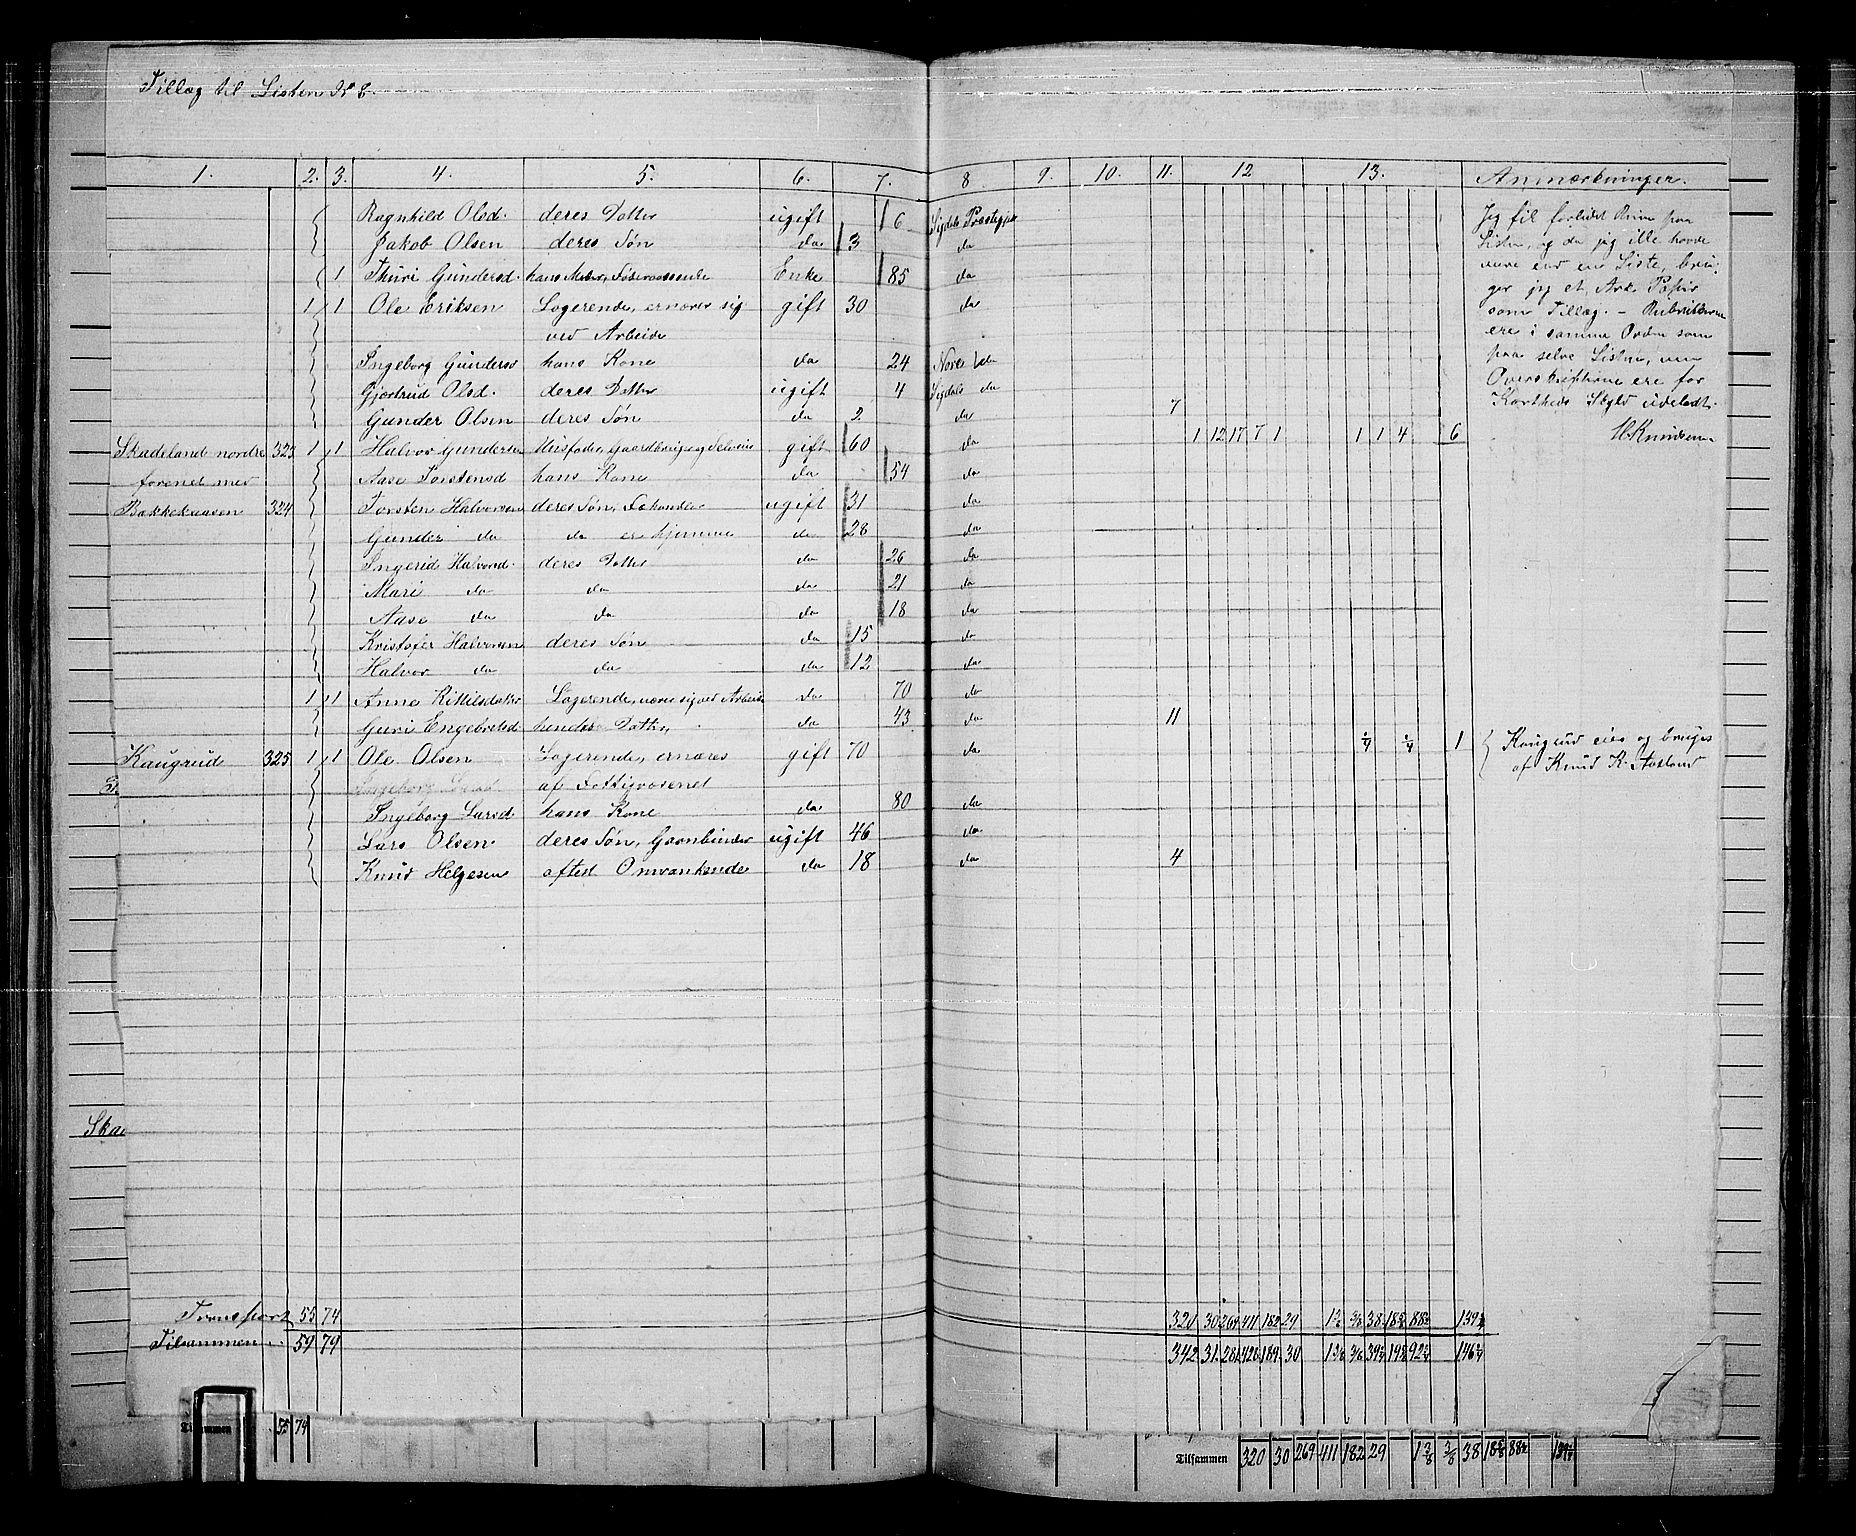 Tillæg til Listen N 8.
1. 2. 3. 4. 5. 6. 7. 8 9. 10. 11. 12 13. Anmærkninger.
Ragnhild Olsd. deres Datter ugift 6 Sigdals Præstegj
Jakob Olsen deres Søn do 3 do
Thuri Gundersd. hans Moder, Enke 85 do
1 1 Ole Eriksen Logerende, ernærer sig gift 30 do
ved Arbeide
Ingeborg Gundersd hans Kone do 24 Nore do
Gjertrud Olsd. deres Datter ugift 4 Sigdals do
Gunder Olsen deres Søn do 2 do 7
Skadeland nordre 323 1 1 Halvor Gundersen Husfader, Gaardbruger og Selveier gift 60 do 1 12 17 7 1 1 1 4 6
forenet med Aase Torstensd hans Kone do 54 do
Bakkekaasen 324 Torsten Halvorsen deres Søn, ugift 31 do
Gunder do do er hjemme do 28 do
Ingerid Halvorsd. deres Datter do 26 do
Mari do do do 21 do
Aase do do do 18 do
Kristofer Halvorsen deres Søn do 15 do
Halvor do do do 12 do
1 1 Anne Kittilsdatter Logerende, nærer sig ved Arbeide do 70 do
Guri Engebretsd hendes Datter, do 43 do 11
Kaugrud 325 1 1 Ole Olsen Logerende, ernæres gift 70 do 1/4 1/4 1
af Fattigvæsenet
Ingeborg Larsd hans Kone do 80 do
Lars Olsen deres Søn, Garnbinder ugift 46 do
Knud Helgesen afted Omvankende do 18 do 4
Jeg fik forlidet Rum paa
Listen, og da jeg ikke havde
mere end en Liste, bru-
ger jeg et Ark Papir
som Tillæg. - Rubrikkerne
ere i samme Orden som
paa selve Listen, men
Overskrifterne ere for
Kortheds Skyld udeladt.
H Knudsen
Kaugrud eies og bruges
af Knud K. Aasland
Skae
Transport 55 74 320 30 269 411 182 29 38
Tilsammen 59 79 342 31 281 428 189 30
Tilsammen 55 74
Tilsammen 320 30 269 411 182 29 1 3/8 3/8 38